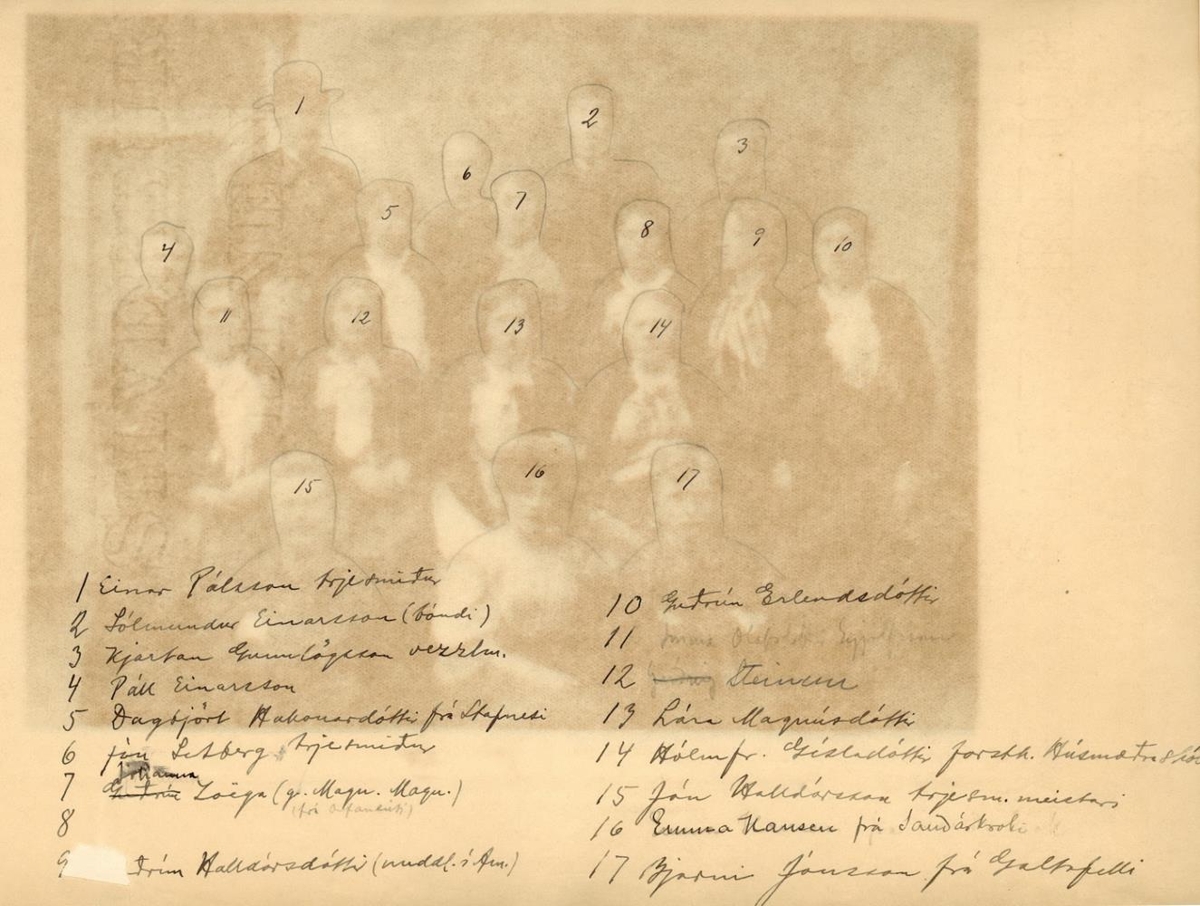 1
2
3
6
7
5
8
9
10
4
11
12
13
14
15
16
17
1 Einar Pálsson trjesmiður
2 Sólmundur Einarsson (bóndi)
3 Kjartan Gunnlögsson verzlm.
4 Páll Einarsson
5 Dagbjört Hakonardóttir frá Stafnesi
6 Jón Setberg trjesmiður
7 Jóhanna Zoëga (g. Magn. Magn.)
8
9 ðrún Halldórsdóttir (nuddl. í Am.)
10 Guðrún Erlendsdóttir
11
12 Steinunn
13 Lára Magnúsdóttir
14 Hólmfr. Gísladóttir forsth. Húsmæðraskól
15 Jón Halldórsson trjesm. meistari
16 Emma Hansen frá Sauðárkroki
17 Bjarni Jónsson frá Galtafelli